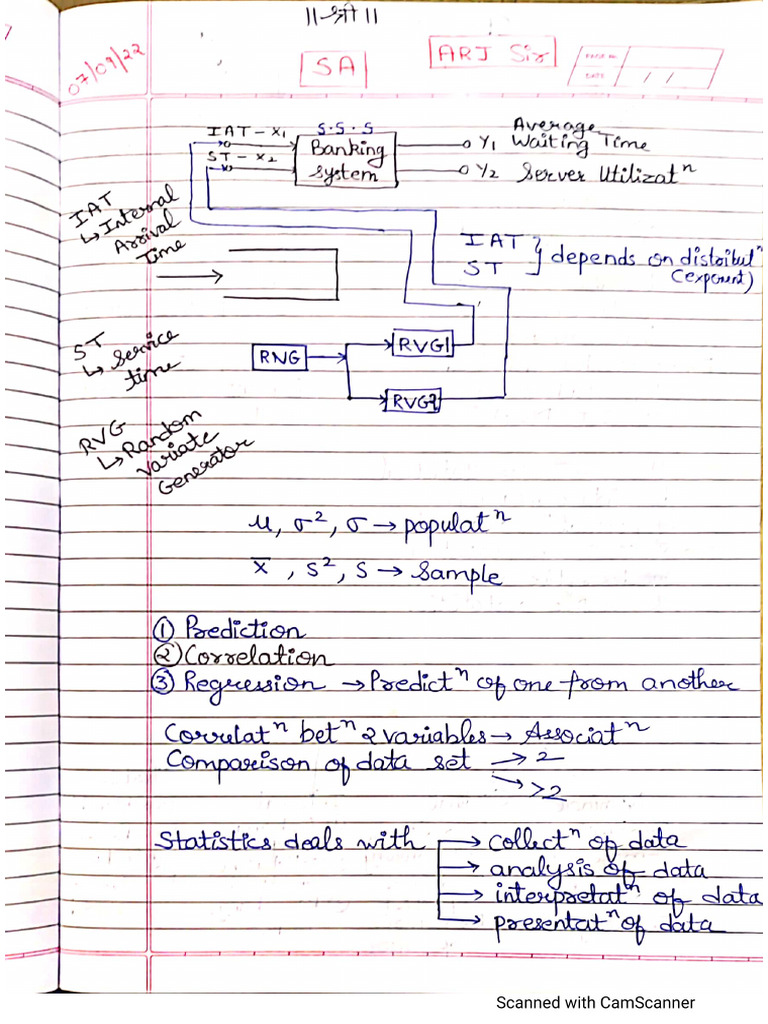 ॥ श्री ॥
07/09/22
SA
ARJ Sir
PAGE No.
DATE / /
IAT - X₁
S.S.S
ST - X₂
Banking
System
Y₁ Average
Waiting Time
Y₂ Server Utilizatⁿ
IAT
↳ Internal
Arrival
Time
IAT
ST } depends on distribuⁿ
(exponent)
ST
↳ Service
time
RNG
RVG1
RVG2
RVG
↳ Random
Variate
Generator
μ, σ², σ → populatⁿ
x̄, s², s → Sample
① Prediction
② Correlation
③ Regression → Predictⁿ of one from another
Correlatⁿ betⁿ 2 variables → Associatⁿ
Comparison of data set → 2
→ >2
Statistics deals with → collectⁿ of data
→ analysis of data
→ interpretatⁿ of data
→ presentatⁿ of data
Scanned with CamScanner